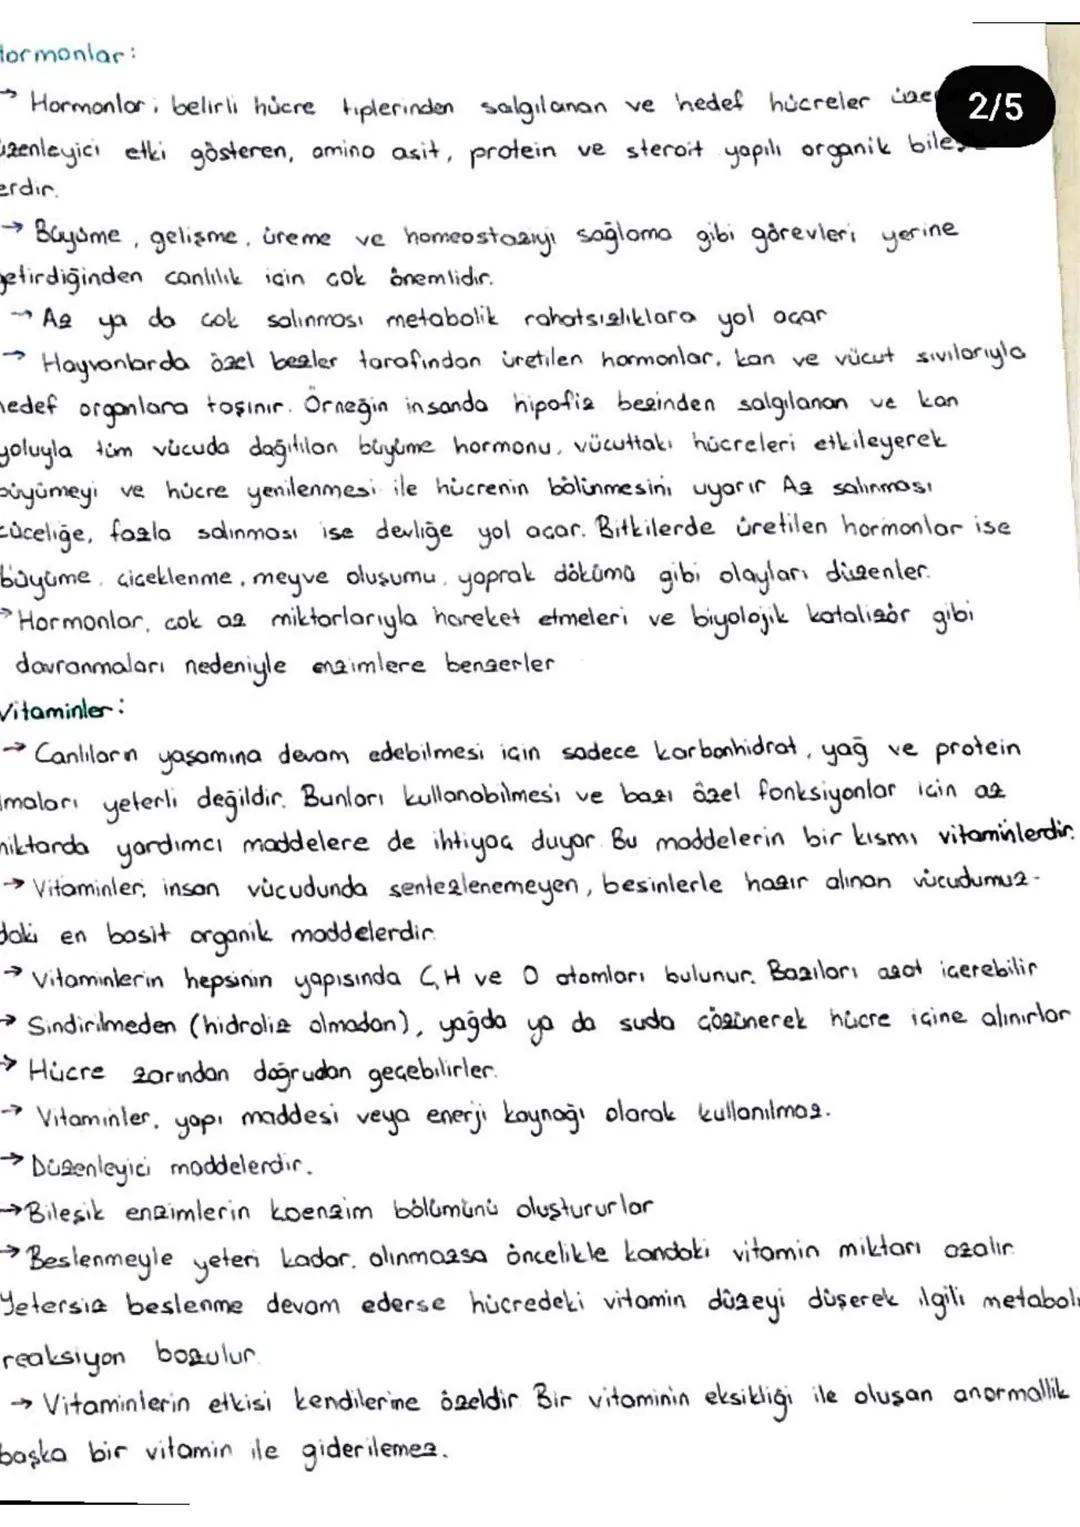 Hormonlar:
→ Hormonlar; belirli hücre tiplerinden salgılanan ve hedef hücreler üzer
2/5
üzenleyici etki gösteren, amino asit, protein ve steroit yapılı organik bileş
erdir.
→ Büyüme, gelişme, üreme ve homeostaziyi sağlama gibi görevleri yerine
getirdiğinden canlılık için çok önemlidir.
→ Az ya da çok salınması metabolik rahatsızlıklara yol açar
→ Hayvanlarda özel bezler tarafından üretilen hormonlar, kan ve vücut sıvılarıyla
hedef organlara taşınır. Örneğin insanda hipofiz bezinden salgılanan ve kan
yoluyla tüm vücuda dağıtılan büyüme hormonu, vücuttaki hücreleri etkileyerek
büyümeyi ve hücre yenilenmesi ile hücrenin bölünmesini uyarır Az salınması
cüceliğe, fazla salınması ise devliğe yol açar. Bitkilerde üretilen hormonlar ise
büyüme, çiçeklenme, meyve oluşumu, yaprak dökümü gibi olayları düzenler.
→ Hormonlar, çok az miktarlarıyla hareket etmeleri ve biyolojik katalizör gibi
davranmaları nedeniyle enzimlere benzerler
Vitaminler:
→ Canlıların yaşamına devam edebilmesi için sadece karbonhidrat, yağ ve protein
lmaları yeterli değildir. Bunları kullanabilmesi ve bazı özel fonksiyonlar için az
miktarda yardımcı maddelere de ihtiyaç duyar. Bu maddelerin bir kısmı vitaminlerdir.
→ Vitaminler; insan vücudunda sentezlenemeyen, besinlerle hazır alınan vücudumuz-
daki en basit organik maddelerdir.
→ Vitaminlerin hepsinin yapısında C,H ve O atomları bulunur. Bazıları azot içerebilir
→ Sindirilmeden (hidroliz olmadan), yağda ya da suda çözünerek hücre içine alınırlar
→ Hücre zarından doğrudan geçebilirler.
→ Vitaminler, yapı maddesi veya enerji kaynağı olarak kullanılmaz.
→ Düzenleyici maddelerdir.
→ Bileşik enzimlerin koenzim bölümünü oluştururlar
→ Beslenmeyle yeteri kadar, alınmazsa öncelikle kandaki vitamin miktarı azalır.
Yetersiz beslenme devam ederse hücredeki vitamin düzeyi düşerek ilgili metaboli
reaksiyon bozulur.
→ Vitaminlerin etkisi kendilerine özeldir. Bir vitaminin eksikliği ile oluşan anormallik
başka bir vitamin ile giderilemez.